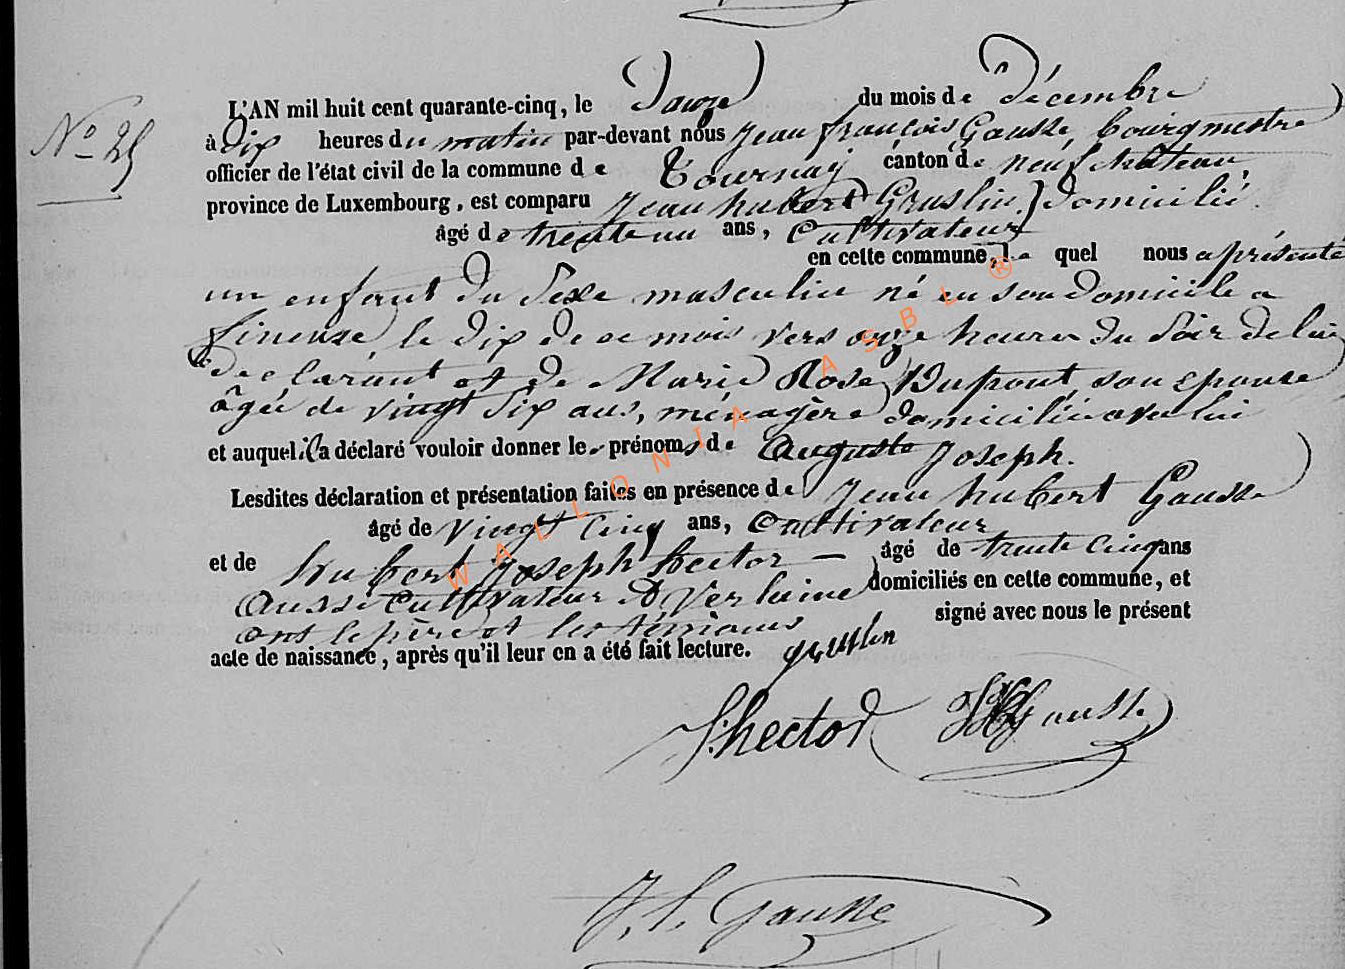 N° 25
L'AN mil huit cent quarante-cinq, le Douze du mois de Décembre
à Dix heures du matin par-devant nous Jean françois Gausse bourgmestre
officier de l'état civil de la commune de Tournay canton de neufchateau,
province de Luxembourg, est comparu Jean hubert Gruslin, domicilié
âgé de trente un ans, Cultivateur
en cette commune, le quel nous a présenté
un enfant du Sexe masculin né en son domicile a
fineuse, le dix de ce mois vers onze heures du Soir de lui
déclarant et de Marie Rose Dupont, son epouse
âgée de vingt Six ans, ménagère domiciliée avec lui
et auquel il a déclaré vouloir donner les prénoms de Auguste Joseph.
Lesdites déclaration et présentation faites en présence de Jean hubert Gausse
âgé de Vingt Cinq ans, Cultivateur
et de hubert Joseph hector — âgé de trente cinq ans
aussi Cultivateur à Verlaine domiciliés en cette commune, et
ont le père et les témoins signé avec nous le présent
acte de naissance, après qu'il leur en a été fait lecture. gruslin
hector Gausse
J. f. Gausse
WALLONIA ASBL ®